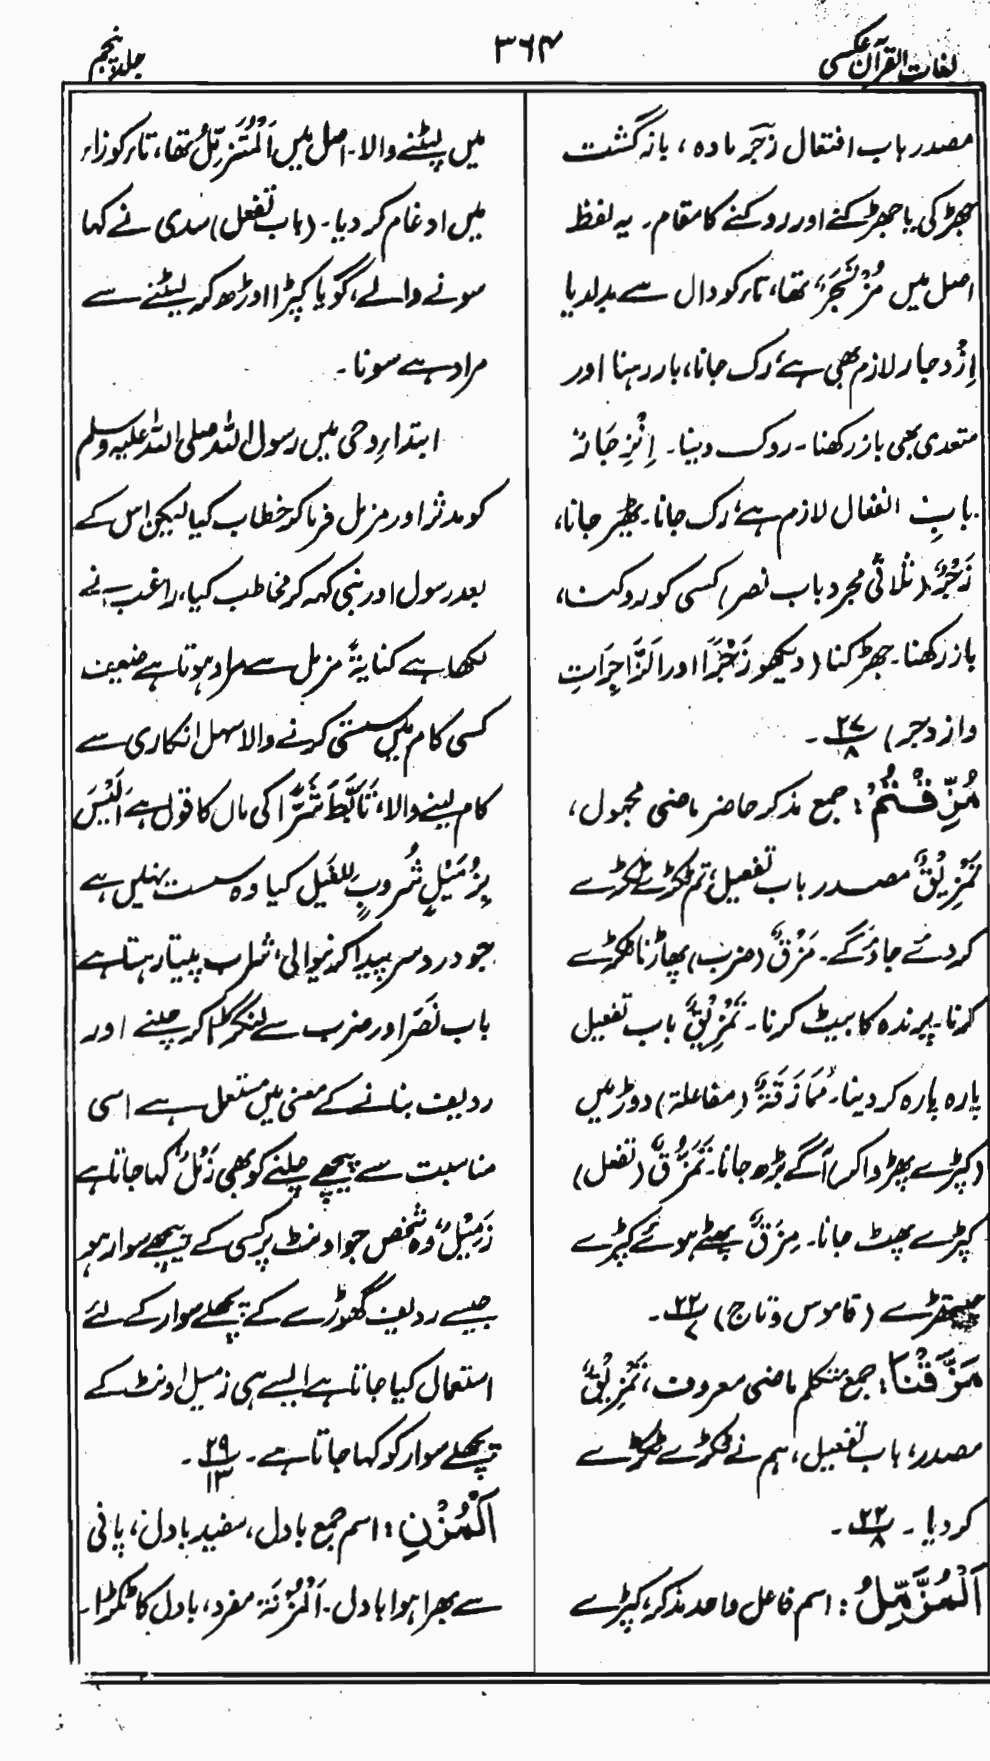 لغات القرآن عکسی
۳۶۴
جلد پنجم
مصدر باب افتعال زَجَر مادہ ، بازگشت
جھڑکی یا جھڑکنے اور روکنے کا مقام۔ یہ لفظ
اصل میں مُزْتَجَرٌ تھا، تار کو دال سے بدلدیا
اِزْدجار لازم بھی ہے، رک جانا، باز رہنا اور
متعدی بھی باز رکھنا۔ روک دینا۔ اِنْزِجَارٌ
باب انفعال لازم ہے، رک جانا۔ پھر جانا،
زَجْرٌ (ثلاثی مجرد باب نصر) کسی کو روکنا،
باز رکھنا۔ جھڑکنا (دیکھو زَجْرًا اور الزَّاجِرَاتِ
وازدجر) ۲۷/۸ ۔
مُزِّقْتُمْ : جمع مذکر حاضر ماضی مجہول،
تَمْزِیْقٌ مصدر باب تفعیل، تم ٹکڑے ٹکڑے
کر دئے جاؤگے۔ مَزْقٌ (ضرب) پھاڑنا ٹکڑے
کرنا۔ پرندہ کا بیٹ کرنا۔ تَمْزِیْقٌ باب تفعیل
پارہ پارہ کر دینا۔ مُمَازَقَۃٌ (مفاعلۃ) دوڑ میں
(کپڑے پھڑوا کر) آگے بڑھ جانا۔ تَمَزُّقٌ (تفعل)
کپڑے پھٹ جانا۔ مِزَقٌ پھٹے ہوئے کپڑے
چیتھڑے (قاموس وتاج) ۲۲/۷ ۔
مَزَّقْنَا : جمع متکلم ماضی معروف، تَمْزِیْقٌ
مصدر، باب تفعیل، ہم نے ٹکڑے ٹکڑے
کر دیا ۔ ۲۲/۸ ۔
اَلْمُزَّمِّلُ : اسم فاعل واحد مذکر، کپڑے
میں لپٹنے والا۔ اصل میں اَلْمُتَزَمِّلُ تھا، تار کو زار
میں ادغام کر دیا۔ (باب تفعل) سدی نے کہا
سونے والے، گویا کپڑا اوڑھ کر لیٹنے سے
مراد ہے سونا۔
ابتدارِ وحی میں رسول اللہ صلی اللہ علیہ وسلم
کو مدثر اور مزمل فرما کر خطاب کیا لیکن اس کے
بعد رسول اور نبی کہہ کر مخاطب کیا، راغب نے
لکھا ہے کنایۃً مزمل سے مراد ہوتا ہے ضعیف
کسی کام میں سستی کرنے والا سہل انکاری سے
کام لینے والا، تَأَبَّطَ شَرًّا کی ماں کا قول ہے اَلَیْسَ
بِزُمَّیْلٍ شُرُوبٍ لِلقَیل کیا وہ سست نہیں ہے
جو درد سر پیدا کرنیوالی شراب پیتا رہتا ہے
باب نصَر اور ضرب سے لنگڑا کر چلنے اور
ردیف بنانے کے معنی میں مستعمل ہے اسی
مناسبت سے پیچھے چلنے کو بھی زَمْلٌ کہا جاتا ہے
زَمِیْلٌ وہ شخص جو اونٹ پر کسی کے پیچھے سوار ہو
جیسے ردیف گھوڑے کے پچھلے سوار کے لئے
استعمال کیا جاتا ہے ایسے ہی زمیل اونٹ کے
پچھلے سوار کو کہا جاتا ہے۔ ۲۹/۱۳ ۔
اَلْمُزْنِ : اسم جمع بادل، سفید بادل، پانی
سے بھرا ہوا بادل۔ اَلْمُزْنَۃ مفرد، بادل کا ٹکڑا۔